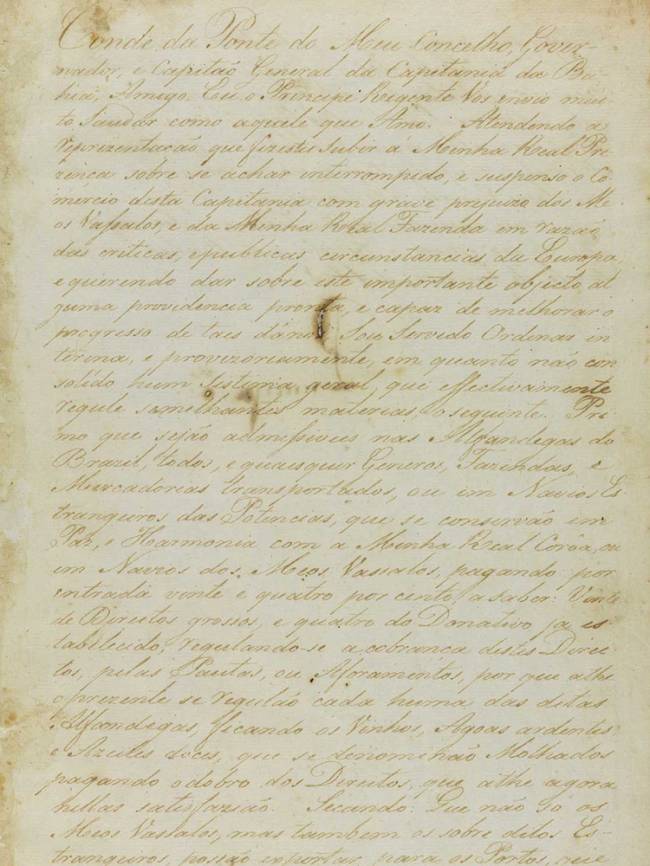 Conde da Ponte do Meu Concelho, Gover-
nador, e Capitaõ General da Capitania da Ba-
hia; Amigo. Eu o Principe Regente Vos envio mui-
to Saudar como aquele que Amo. Atendendo a
reprezentaçaõ que fizestes Subir a Minha Real Pre-
zença sobre se achar interrompido, e suspenso o Co-
mercio desta Capitania com grave prejuizo dos Me-
os Vassalos, e da Minha Real Fazenda em razaõ
das criticas, e publicas circunstancias da Europa,
e querendo dar sobre este importante objecto al-
guma providencia pronta, e capaz de melhorar o
progresso de taes dános: Sou Servido Ordenar in-
terina, e provizoriamente, em quanto naõ con-
solido hum Sistema geral, que effectivamente
regule semelhantes materias, o seguinte. Pri-
mo que sejaõ admissiveis nas Alfandegas do
Brazil, todos, e quaesquer Generos, Fazendas, e
Mercadorias transportados, ou em Navios Es-
trangeiros das Potencias, que se conservaõ em
Paz, e Harmonia com a Minha Real Corôa, ou
em Navios dos Meos Vassalos, pagando por
entrada vinte e quatro por cento, a saber: Vinte
de Direitos grossos, e quatro do Donativo ja es-
tabelecido, regulando-se a cobrança destes Direi-
tos, pelas Pautas, ou Aforamentos, por que athe
o prezente se regulaõ cada huma das ditas
Alfandegas, ficando os Vinhos, Agoas ardentes
e Azeites doces, que se denominaõ Molhados
pagando o dobro dos Direitos, que athe agora
nellas satisfaziaõ. Secundo: Que naõ só os
Meos Vassalos, mas tambem os sobre ditos Es-
trangeiros, possaõ exportar para os Portos, que